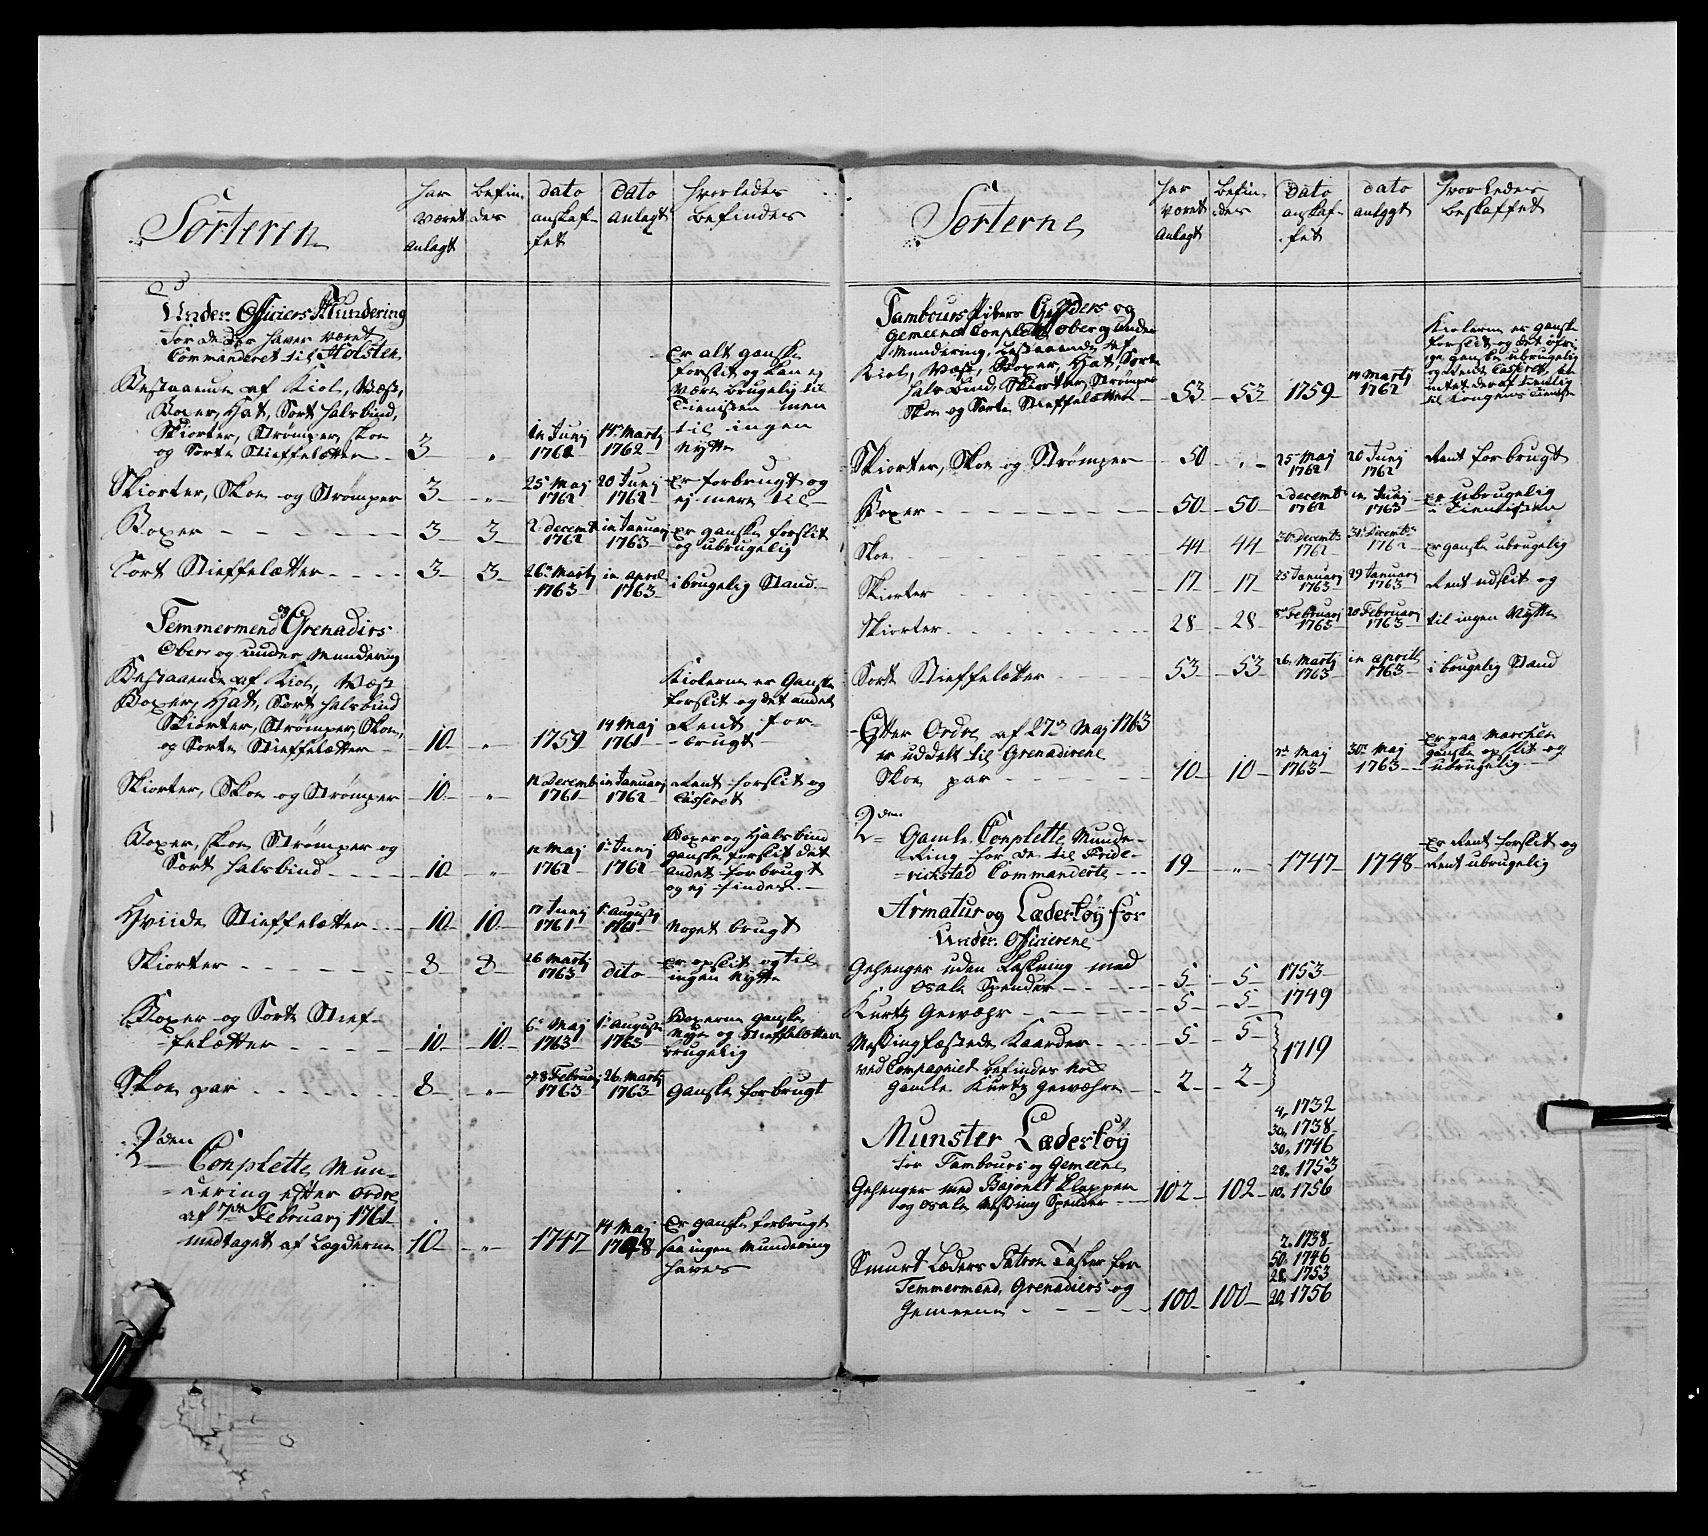 Sorteren
har været anlagt
befindes
dato anskaffet
dato anlagt
hvorledes befindes
Under Officiers Mundering
for de der haver været
Commanderet til Holsten,
Bestaaende af Kiol, Væst,
Boxer, Hat, Sort halsbind,
Skiorter, Strømper, skoe
og Sorte Stieffeletter 3 "
in Junj 1762
14 Martj 1762
er alt ganske
forslit og kan ej
være brugelig til
Tienisten men
til ingen
Nytte
Skiorter, Skoe og Strømper 3 " 25 Maj 1762 20 Junj 1762 er forbrugt og ej mere til
Boxer 3 3 2 decemb 1762 in Januarj 1763 er ganske forslit og ubrugelig
Sort Stieffeletter 3 3 26 Martj 1763 in april 1763 i brugelig Stand
Temmermend og Grenadirs
Ober og under Mundering
Bestaaende af Kiol, Væst
Boxer, Hat, Sort halsbind
Skiorter, Strømper, Skoe,
og Sorte Stieffeletter 10 " 1759 14 Maj 1761
Kiolerne er Ganske
forslit og det andet
Rent for-
brugt
Skiorter, Skoe og Strømper 10 " Decemb 1761 in Januarj 1762 Rent forslit og Casseret
Boxer, skoe Strømper og
Sort halsbind 10 " Maj 1762 Junj 1762
Boxer og Halsbind
ganske forslit det
andet forbrugt
og ej findes
Hviide Stieffeletter 10 10 17 Junj 1761 1 augustj 1761 Noget brugt
Skiorter 8 8 26 Martj 1763 dito er opslit og til ingen Nytte
Boxer og Sorte Stief-
feletter 10 10 6 Maj 1763 1 augusti 1763
Boxerne ganske
Nye og Stieffeletter
brugelig
Skoe par 8 " 8 Februarj 1763 26 Martj 1763 Ganske forbrugt
2den
Conplette Mun-
dering efter Ordre
af 7de Februarj 1761
medtaget af Lægderne 10 " 1747 14 Maj 1748
er ganske forbrugt
saa ingen Mundering
haves
Sorterne
har været anlagt
befindes
dato anskaffet
dato anlagt
hvorledes beskaffet
Tambours Pibers Gefriders og
Gemeene Conplett ober og under
Mundering, bestaaende af
Kiol, Væst, Boxer, Hat, Sort
hals bind, Skiorter, Strømper
Skoe og Sorte Stieffeletter 53 53 1759 14 Martj 1762
Kiolerne er ganske
forslit og det øfri-
ge ganske ubrugelig
og Rent Casseret, saa
intet deraf tienlig
til Kongens Tieniste
Skiorter, Skoe og Strømper 50 " 25 Maj 1762 20 Junj 1762 Rent forbrugt
Boxer 50 50 2 decemb 1762 in Junj 1763 er ubrugelig i Tienisten
Skoe 44 44 31 Decemb 1762 31 Decemb 1762 er ganske ubrugelig
Skiorter 17 17 25 Januarj 1763 29 Januarj 1763 Rent udslit og
Skiorter 28 28 8 Februarj 1763 20 Februarj 1763 til ingen Nytte
Sorte Stieffeletter 53 53 26 Martj 1763 in aprill 1763 i brugelig Stand
Efter Ordre af 27de Maj 1763
er uddelt til Grenadirene
Skoe par 10 10 Maj 1763 30 Maj 1763
er paa Marchen
ganske opslit og
ubrugelig
2den
Gamle Conplette Munde-
Ring for de til Fride-
richstad Commanderte 19 " 1747 1748 er Rent forslit og Rent ubrugelig
Armatur og Lædertøy for
Under Officierene
Gehenger uden Laskning med
osale Spender 5 5 1753
Kurtz Gewæhr 5 5 1749
Messingfæstede Kaarder 5 5
ved Compagniet befindes
Gamle Kurtz Gewæhr 2 2
1719
Munster Lædertøy
for Tambours og Gemeene
Gehenger med Bajonet klapper
og osale Messing Spender 102 102
4, 1732
30, 1738
30, 1746
28, 1753
10, 1756
Smurt Læders Patron Tasker for
Temmermend, Grenadiers og
Gemeene 100 100
2, 1738
50, 1746
28, 1753
20, 1756